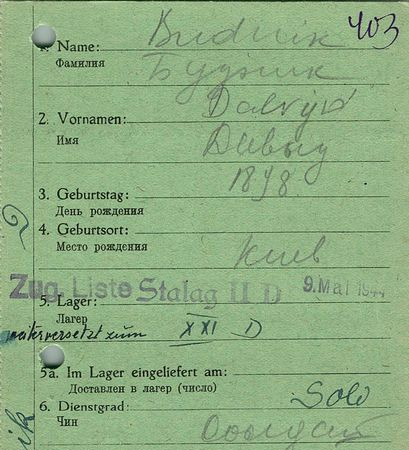 403
1. Name: Budnik
Фамилия Будник
2. Vornamen: Dawyd
Имя Давыд
1898
3. Geburtstag:
День рождения
4. Geburtsort:
Место рождения Kiew
Zug. Liste Stalag II D 9. Mai 1944
5. Lager:
Лагер
weiterversetzt zum XXI D
5a. Im Lager eingeliefert am:
Доставлен в лагер (число)
6. Dienstgrad: Sold
Чин Солдат
ik